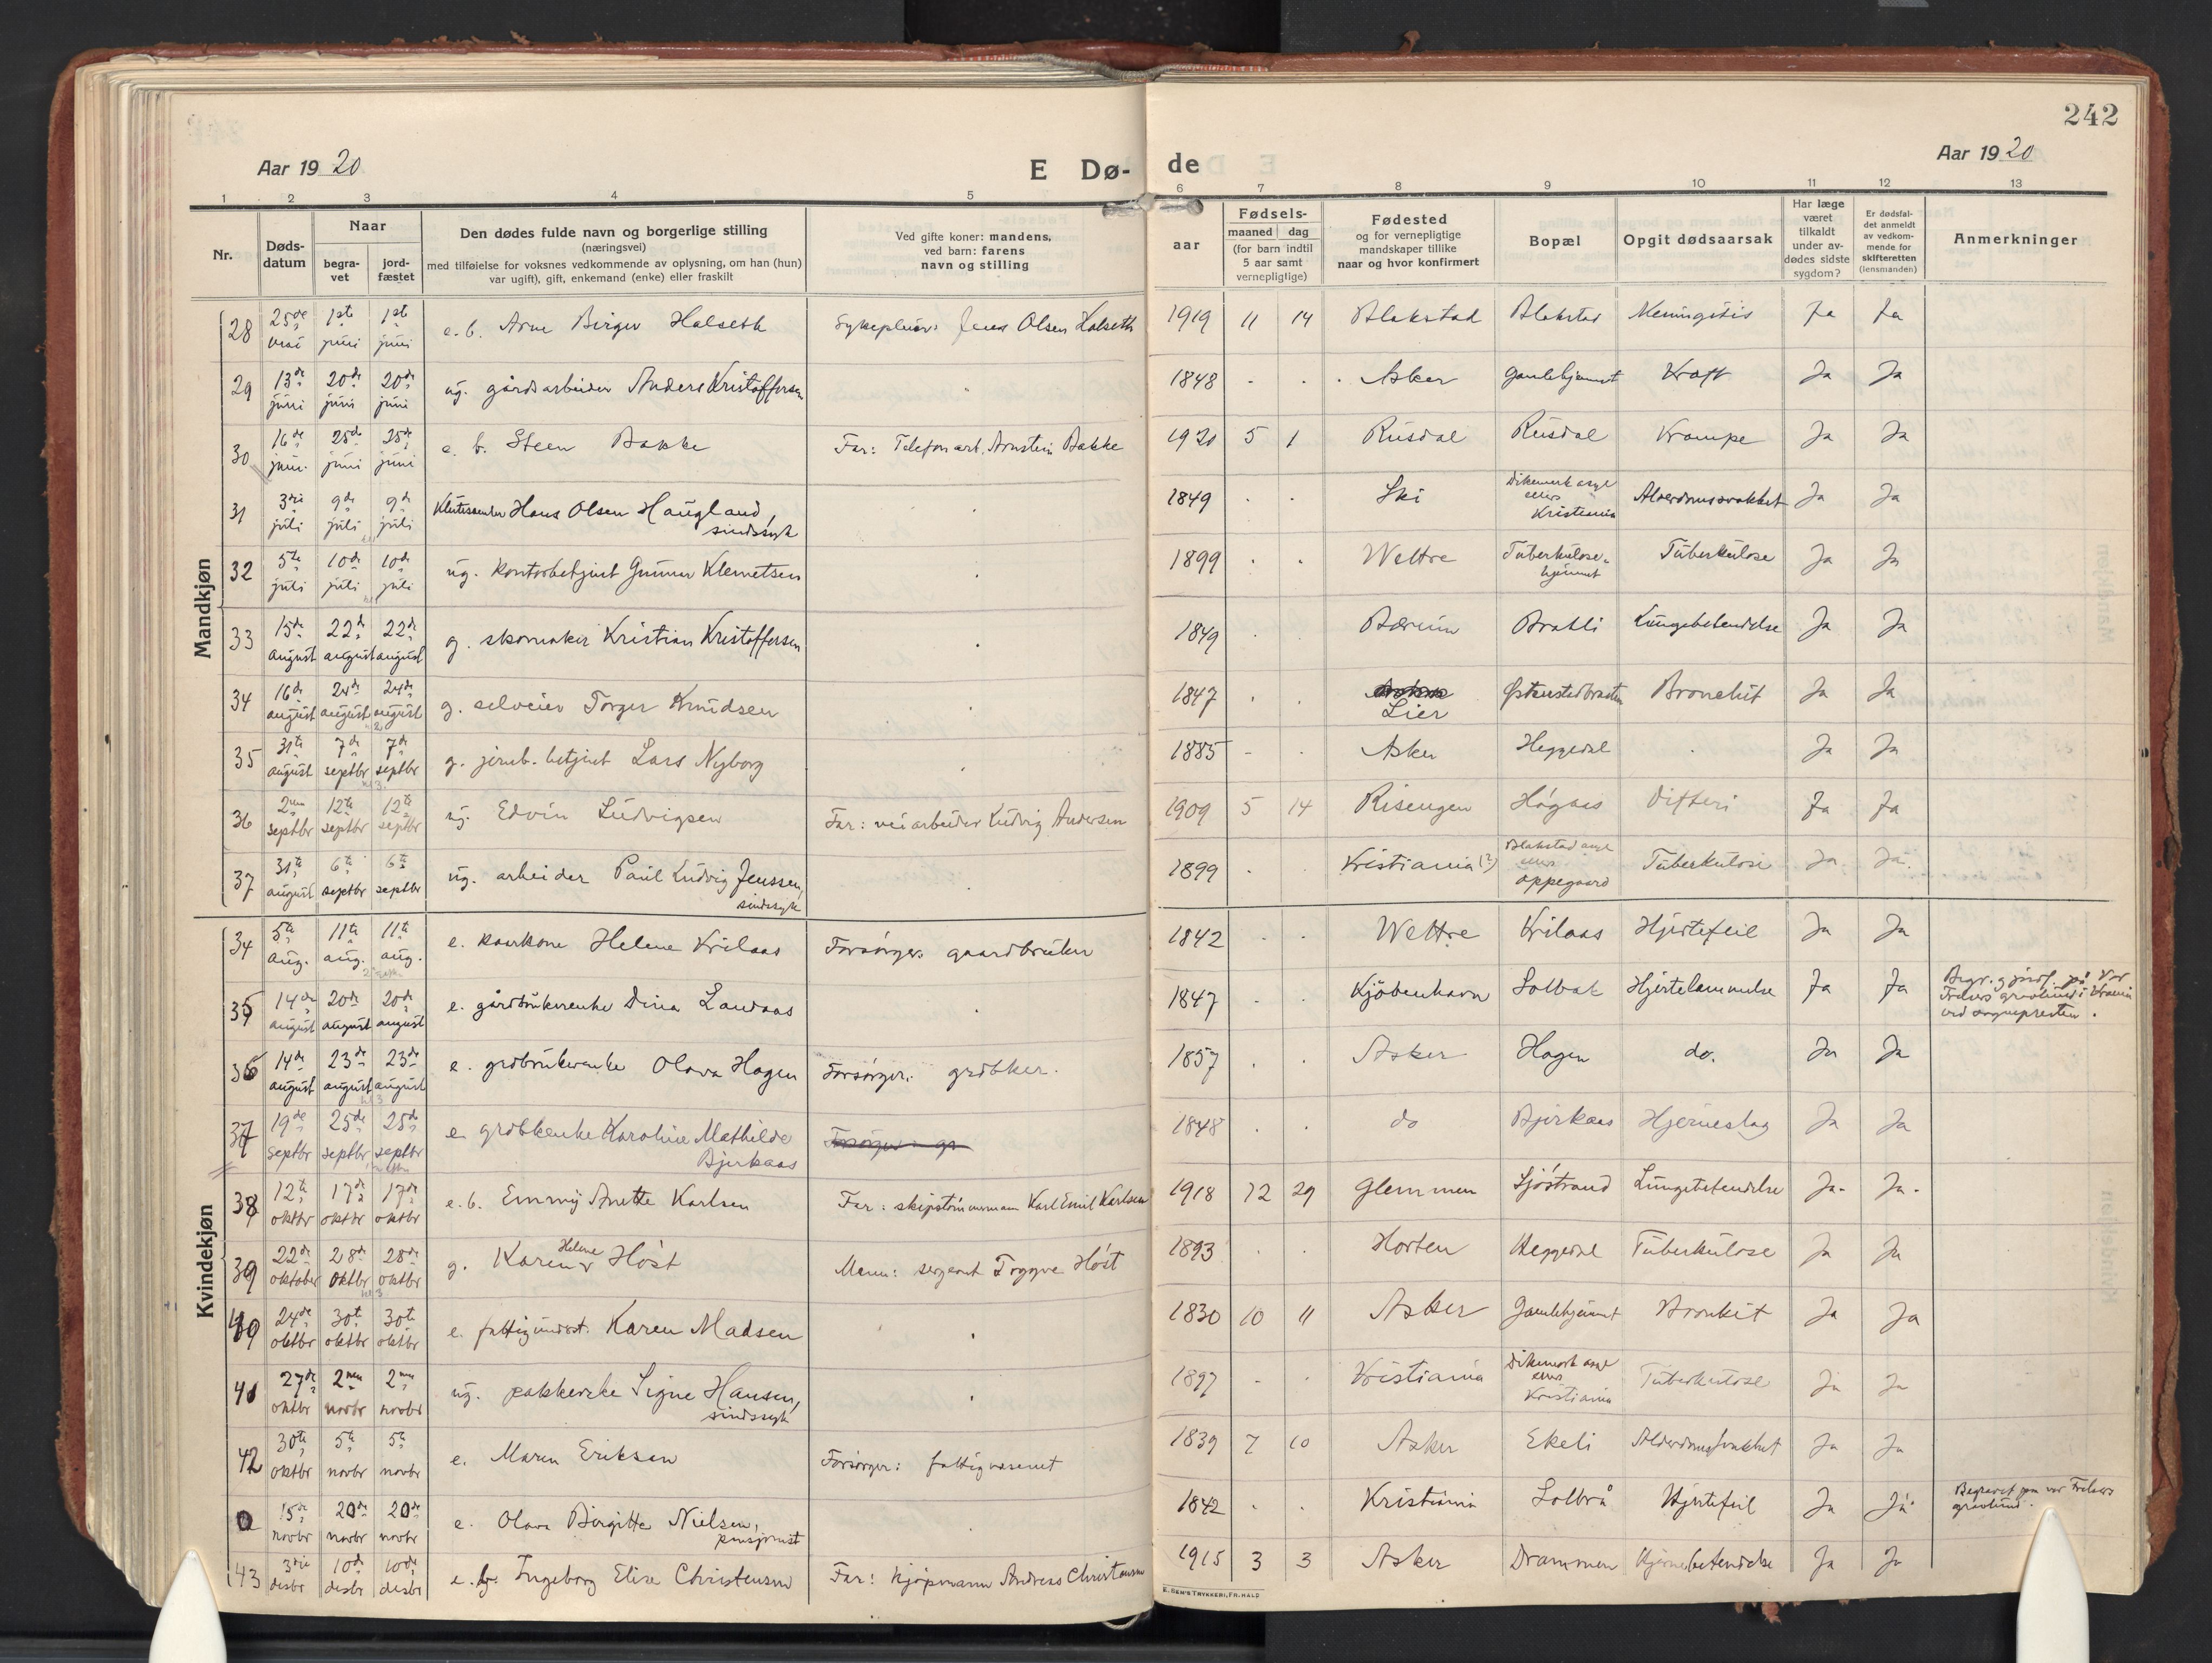 242
Aar 1920
E Dø-
de
Aar 1920
1 2 3 4 5 6 7 8 9 10 11 12 13
Nr.
Døds-
datum
Naar
begra-
vet
jord-
fæstet
Den dødes fulde navn og borgerlige stilling
(næringsvei)
med tilføielse for voksnes vedkommende av oplysning, om han (hun)
var ugift), gift, enkemand (enke) eller fraskilt
Ved gifte koner: mandens,
ved barn: farens
navn og stilling
aar
Fødsels-
maaned dag
(for barn indtil
5 aar samt
vernepligtige)
Fødested
og for vernepligtige
mandskaper tillike
naar og hvor konfirmert
Bopæl
Opgit dødsaarsak
Har læge
været
tilkaldt
under av-
dødes sidste
sygdom?
Er dødsfal-
det anmeldt
av vedkom-
mende for
skifteretten
(lensmanden)
Anmerkninger
Mandkjøn
28 25de mai 1ste juni 1ste juni e. b. Arne Birger Halseth Sykepleier Jens Olsen Halseth 1919 11 14 Blakstad Blakstad Meningitis Ja Ja
29 13de juni 20de juni 20de juni ug. gårdsarbeider Anders Kristoffersen 1848 Asker Gamlehjemmet Kræft Ja Ja
30 16de juni 25de juni 25de juni e. b. Steen Bakke Far: Telefonarb. Arnstein Bakke 1920 5 1 Rusdal Rusdal Krampe Ja Ja
31 3die juli 9de juli 9de juli Hans Olsen Haugland, sindssyk 1849 Ski Dikemark asyl ellers Kristiania Alderdomssvakhet Ja Ja
32 5te juli 10de juli 10de juli ug. kontorbetjent Gunnar Klemetsen 1899 Wettre Tuberkulose-hjemmet Tuberkulose Ja Ja
33 15de august 22de august 22de august g. skomaker Kristian Kristoffersen 1849 Bærum Bratli Lungebetendelse Ja Ja
34 16de august 24de august 24de august g. selveier Torger Knudsen 1847 Lier Østenstadbråten Bronchit Ja Ja
35 31te august 7de septbr 7de septbr g. jernb. betjent Lars Nyborg 1885 Asker Heggedal Ja Ja
36 2den septbr 12te septbr 12te septbr ug. Edvin Ludvigsen Far: veiarbeider Ludvig Andersen 1909 5 14 Risengen Høgaas Difteri Ja Ja
37 31te august 6te septbr 6te septbr ug. arbeider Paul Ludvig Jenssen, sindssyk 1899 Kristiania (?) Blakstad asyl ellers Oppegaard Tuberkulose Ja Ja
Kvindekjøn
34 5te aug. 11te aug. 11te aug. e. kaarkone Helene Krilaas Forsørger: gaardbruker 1842 Wettre Krilaas Hjertefeil Ja Ja
35 14de august 20de august 20de august e. gårdbrukerenke Dina Landaas 1847 Kjöbenhavn Solbak Hjertelammelse Ja Ja Begr. og jordf. på Vor Frelsers gravlund i Krania ved sognepresten.
36 14de august 23de august 23de august e. grdbrukerenke Olava Hagen Forsørger: grdbker. 1857 Asker Hagen do. Ja Ja
37 19de septbr 25de septbr 25de septbr e. grdbkenke Karoline Mathilde Bjerkaas 1848 do Bjerkaas Hjerneslag Ja Ja
38 12te oktbr 17de oktbr 17de oktbr e. b. Emmy Anette Karlsen Far: skipstømmermann Karl Emil Karlsen 1918 12 29 Glemmen Sjøstrand Lungebetendelse Ja. Ja.
39 22de oktober 28de oktbr 28de oktbr g. Karen Helene Höst Mann: sergeant Tryggve Höst 1893 Horten Heggedal Tuberkulose Ja Ja
40 24de oktbr 30te oktbr 30te oktbr e. fattigunderst. Karen Madsen 1830 10 11 Asker Gamlehjemmet Bronkit Ja Ja
41 27de oktbr 2den novbr 2den novbr ug. pakkerske Signe Hansen, sindssyk 1897 Kristiania Dikemark asyl ellers Kristiania Tuberkulose Ja Ja
42 30te oktbr 5te novbr 5te novbr e. Maren Eriksen Forsørger: fattigvesenet 1839 7 10 Asker Ekeli Alderdomssvakhet Ja Ja
0 15de novbr 20de novbr 20de novbr e. Olava Birgitte Nielsen, pensjonist 1842 Kristiania Solbrå Hjertefeil Ja Ja. Begravet paa vor Frelsers gravlund.
43 3die desbr 10de desbr 10de desbr e. b. Ingeborg Elise Christensen Far: kjøpmann Andreas Christensen 1915 3 3 Asker Drammen Hjernebetendelse Ja Ja
E. SEM'S TRYKKERI, FR.HALD